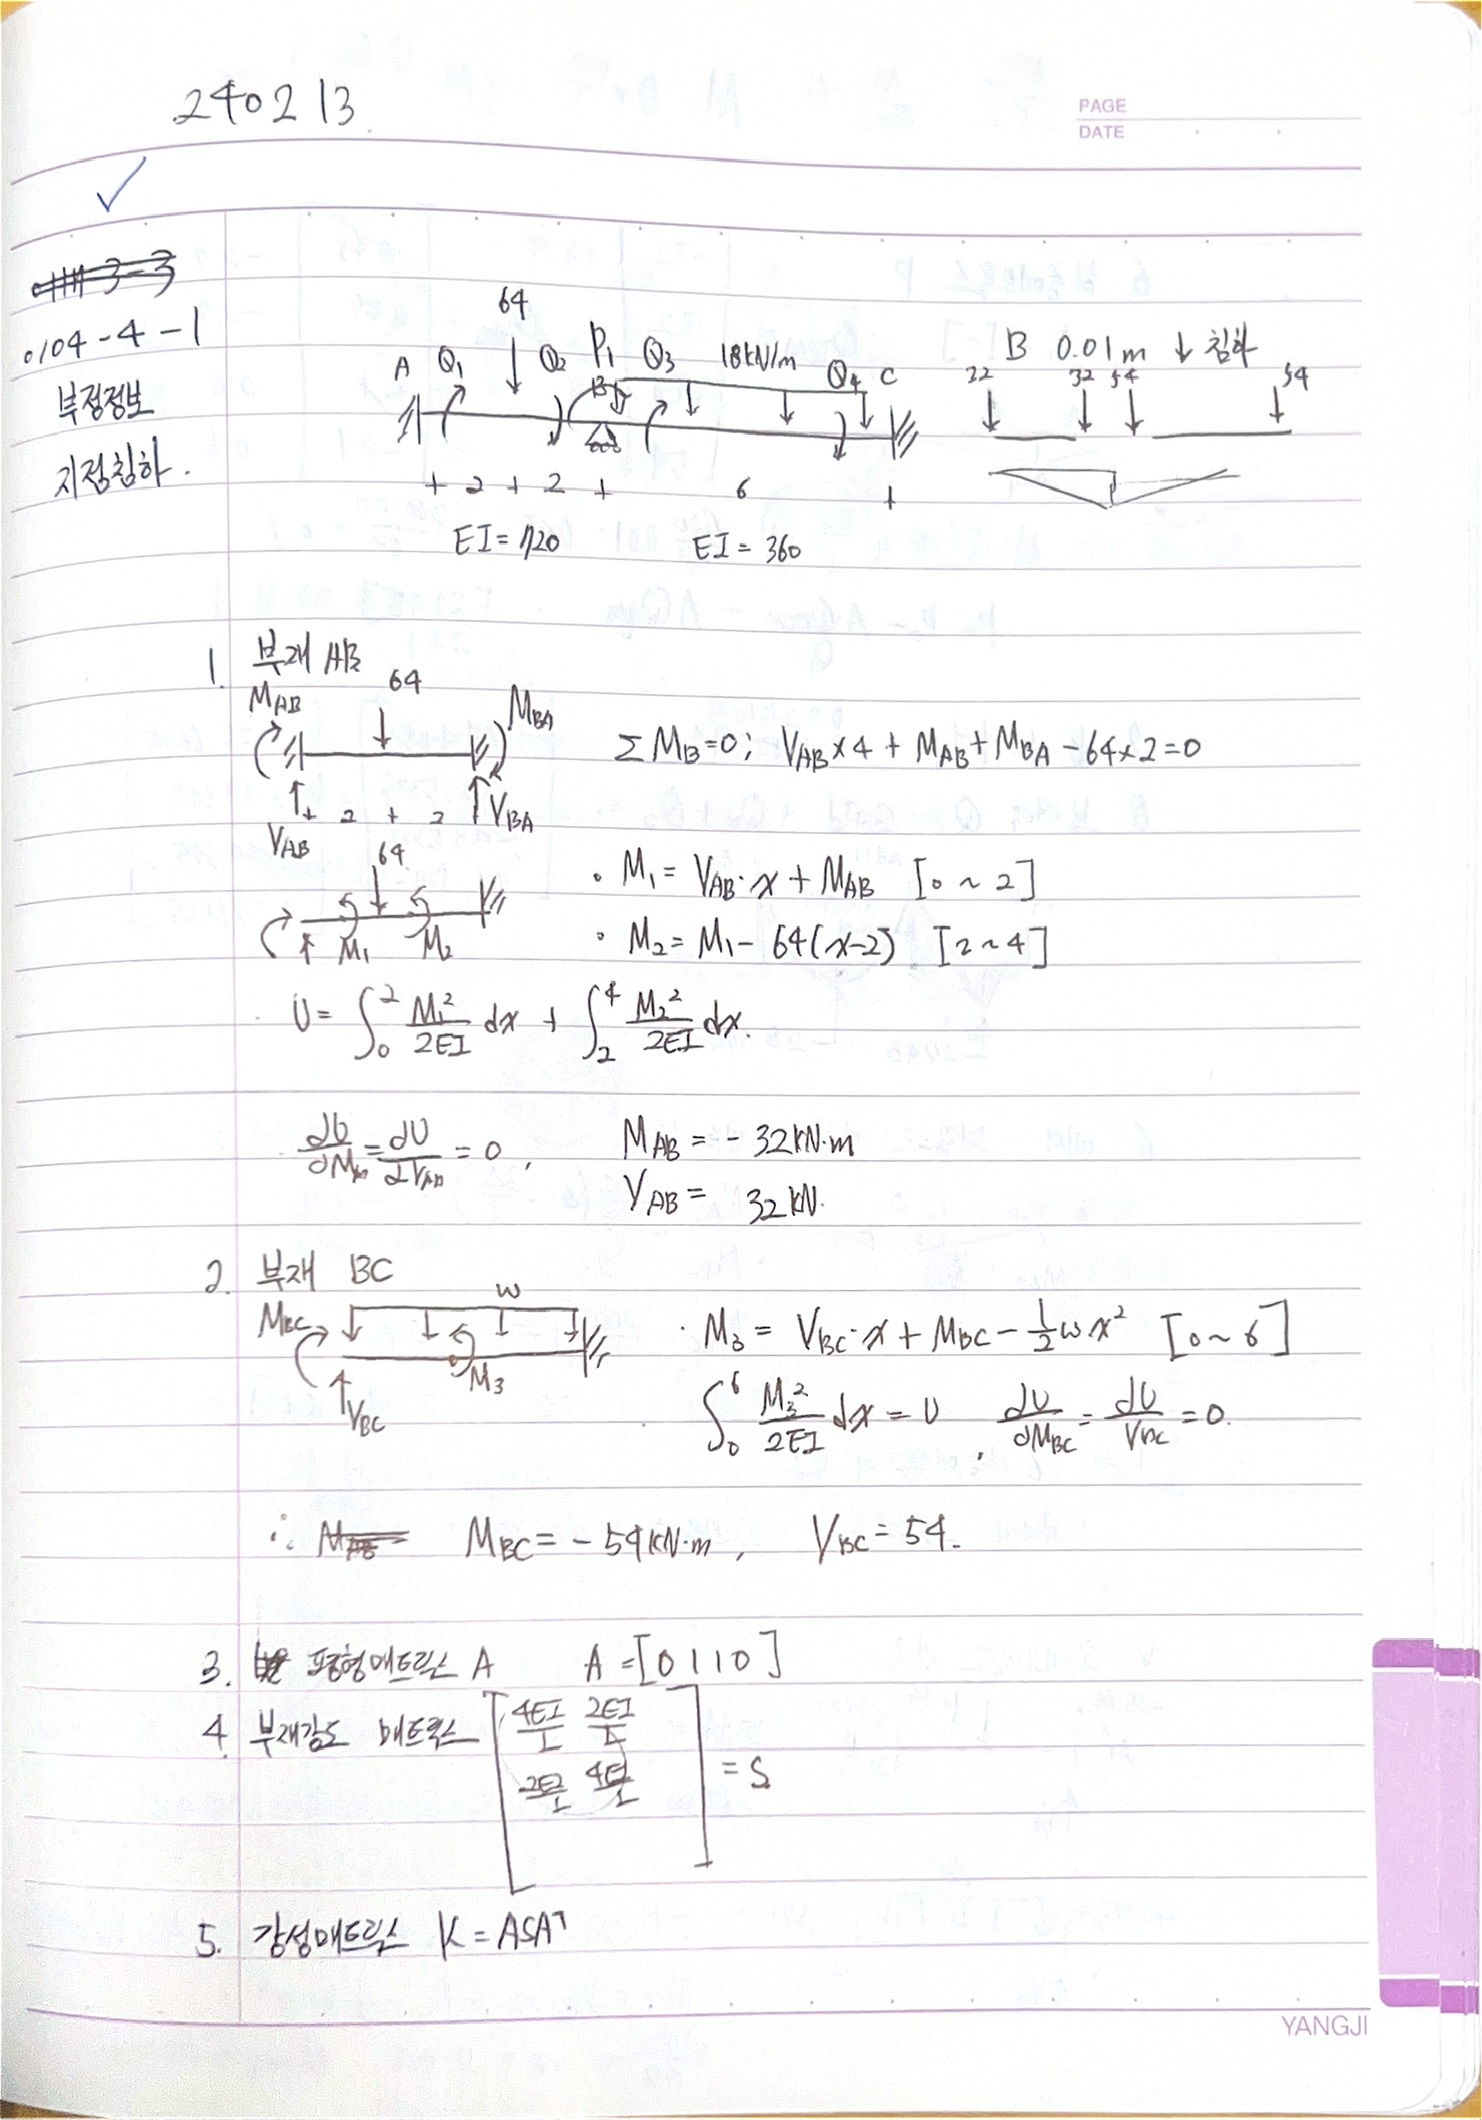 240213
PAGE
DATE
0104-4-1
부정정보
지점침하.
64
A Q₁ Q₂ P₁ Q₃ 18kN/m Q₄ C
B
B 0.01m ↓ 침하
32 32 54 54
+ 2 + 2 + 6 +
EI = 720 EI = 360
1. 부재 AB
M_AB 64 M_BA
ΣM_B=0; V_AB×4 + M_AB + M_BA - 64×2=0
+ 2 + 2 V_BA
V_AB
64
M₁ M₂
· M₁ = V_AB·x + M_AB [0 ~ 2]
· M₂ = M₁ - 64(x-2) [2 ~ 4]
U = ∫₀² M₁²/2EI dx + ∫₂⁴ M₂²/2EI dx.
∂U/∂M_AB = ∂U/∂V_AB = 0, M_AB = - 32kN·m
V_AB = 32kN.
2. 부재 BC
M_BC w
M₃
V_BC
· M₃ = V_BC·x + M_BC - ½wx² [0 ~ 6]
∫₀⁶ M₃²/2EI dx = U, ∂U/∂M_BC = ∂U/V_BC = 0.
∴ M_BC = - 54kN·m, V_BC = 54.
3. 평형매트릭스 A A = [0 1 1 0]
4 부재강도 매트릭스 [4EI/L 2EI/L
2EI/L 4EI/L] = S
5. 강성매트릭스 K = ASAᵀ
YANGJI